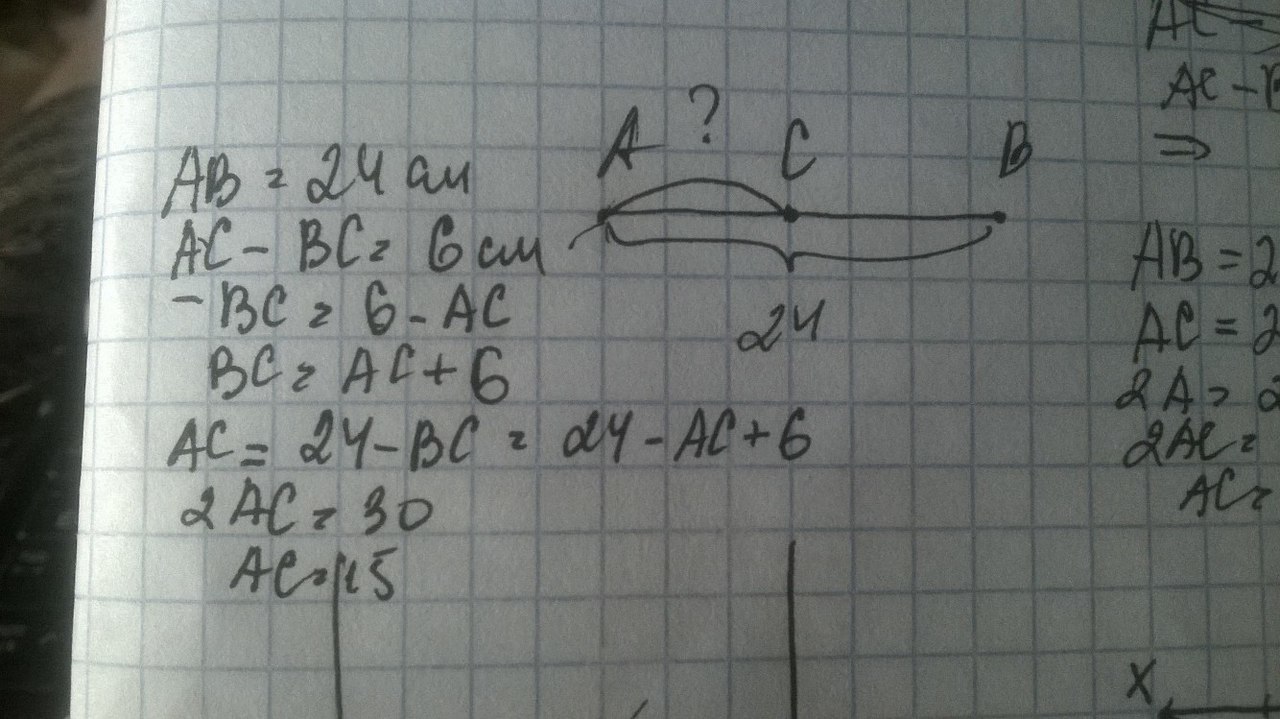 AB = 24 см
AC - BC = 6 см
-BC = 6 - AC
BC = AC + 6
AC = 24 - BC = 24 - AC + 6
2AC = 30
AC = 15
A ? C B
24
AC -
AC -
⇒
AB = 2
AC = 2
2A = 2
2AC =
AC =
X